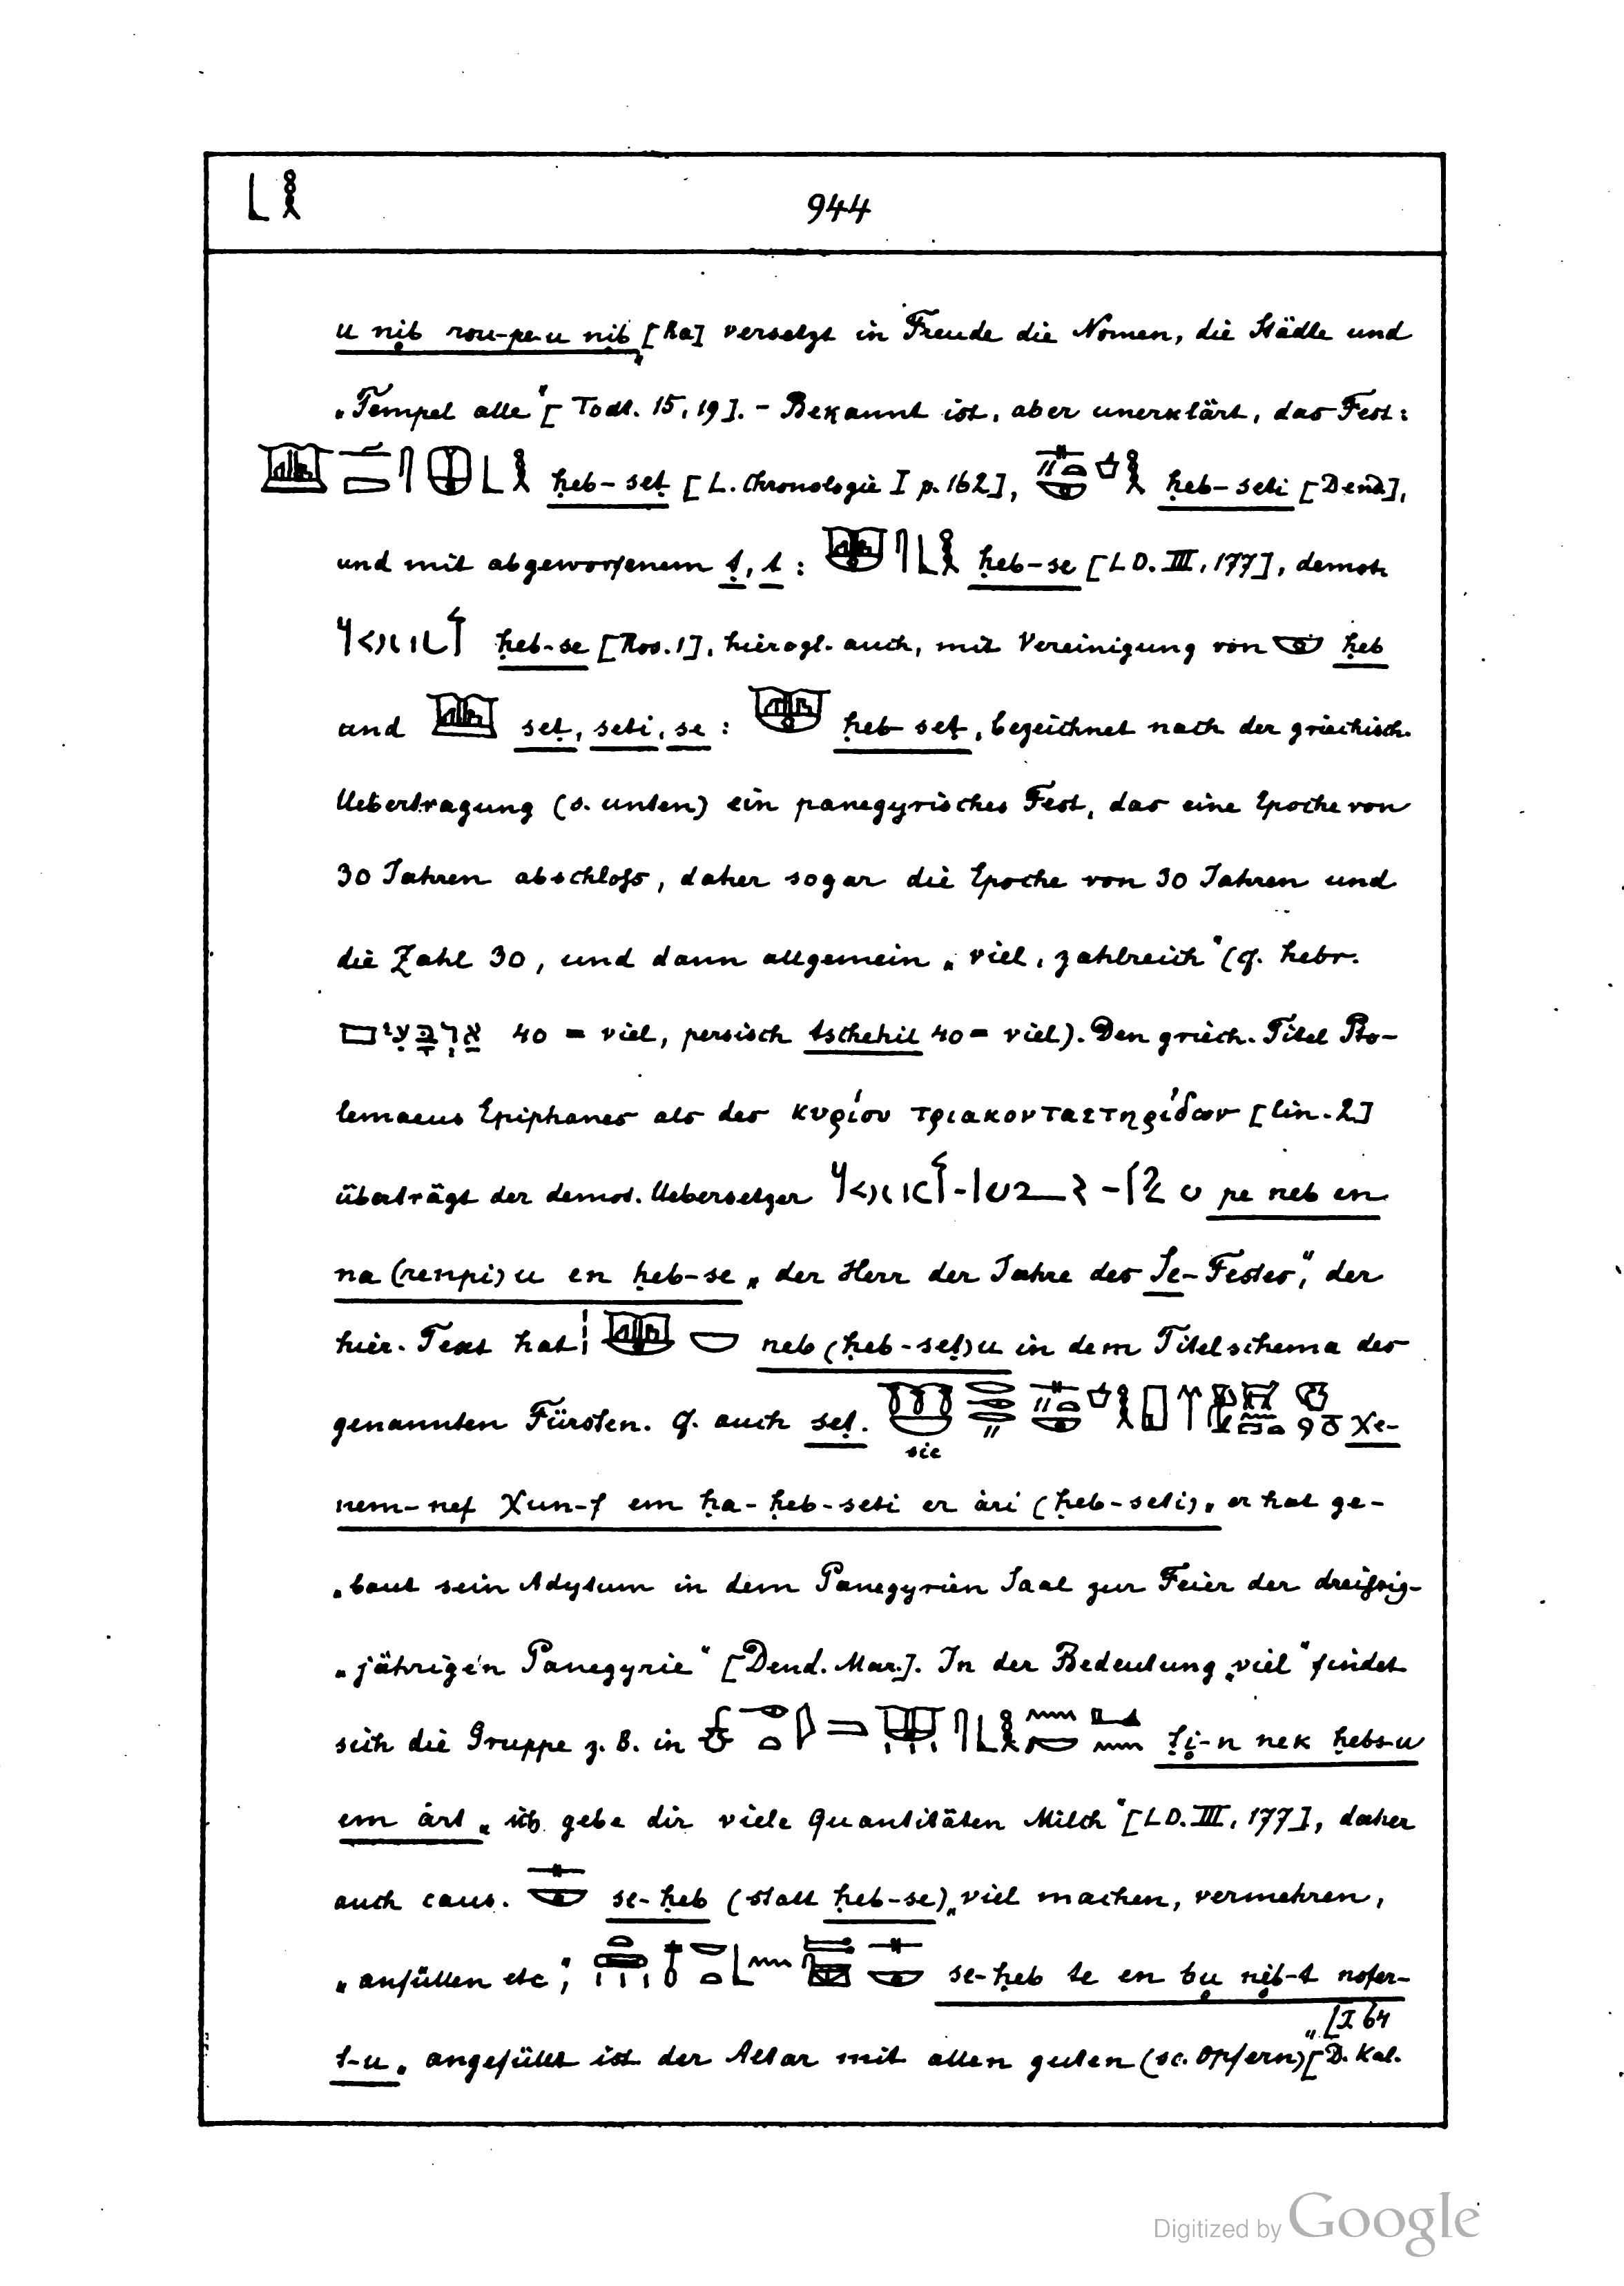 944
u nịb rou-pe-u nịb [Ra] versetzt in Freude die Nomen, die Städte und
„Tempel alle“ [Todt. 15, 19]. – Bekannt ist, aber unerklärt, das Fest:
ḥeb-seṭ [L. Chronologie I p. 162], ḥeb-seti [Dend],
und mit abgeworfenem ṭ, t: ḥeb-se [LD. III, 177], demot.
ḥeb-se [Ros. 1], hierogl. auch, mit Vereinigung von ḥeb
und seṭ, seti, se: ḥeb-seṭ, bezeichnet nach der griechisch.
Uebertragung (s. unten) ein panegyrisches Fest, das eine Epoche von
30 Jahren abschloß, daher sogar die Epoche von 30 Jahren und
die Zahl 30, und dann allgemein „viel, zahlreich“ (cf. hebr.
אַרְבָּעִים 40 = viel, persisch tschehil 40 = viel). Den griech. Titel Pto-
lemaeus Epiphanes als des κυρίου τριακονταετηρίδων [lin. 2]
überträgt der demot. Uebersetzer pe neb en
na (renpi) u en ḥeb-se „der Herr der Jahre des Se-Festes“, der
hier. Text hat neb (ḥeb-seṭ)u in dem Titelschema des
genannten Fürsten. Cf. auch seṭ. Xe-
sic
nem-nef Xun-f em ḥa-ḥeb-seti er ȧri (ḥeb-seti) „er hat ge-
„baut sein Adytum in dem Panegyrien Saal zur Feier der dreißig-
„jährigen Panegyrie“ [Dend. Mar.]. In der Bedeutung „viel“ findet
sich die Gruppe z. B. in ṭị-n nek ḥebs-u
em ȧrt „ich gebe dir viele Quantitäten Milch“ [LD. III, 177], daher
auch caus. se-ḥeb (statt ḥeb-se) „viel machen, vermehren,
„anfüllen etc“; se-ḥeb te en bụ nịb-t nofer-
t-u „angefüllt ist der Altar mit allen guten (sc. Opfern)“ [D. Kal.
[I 64
Digitized by Google